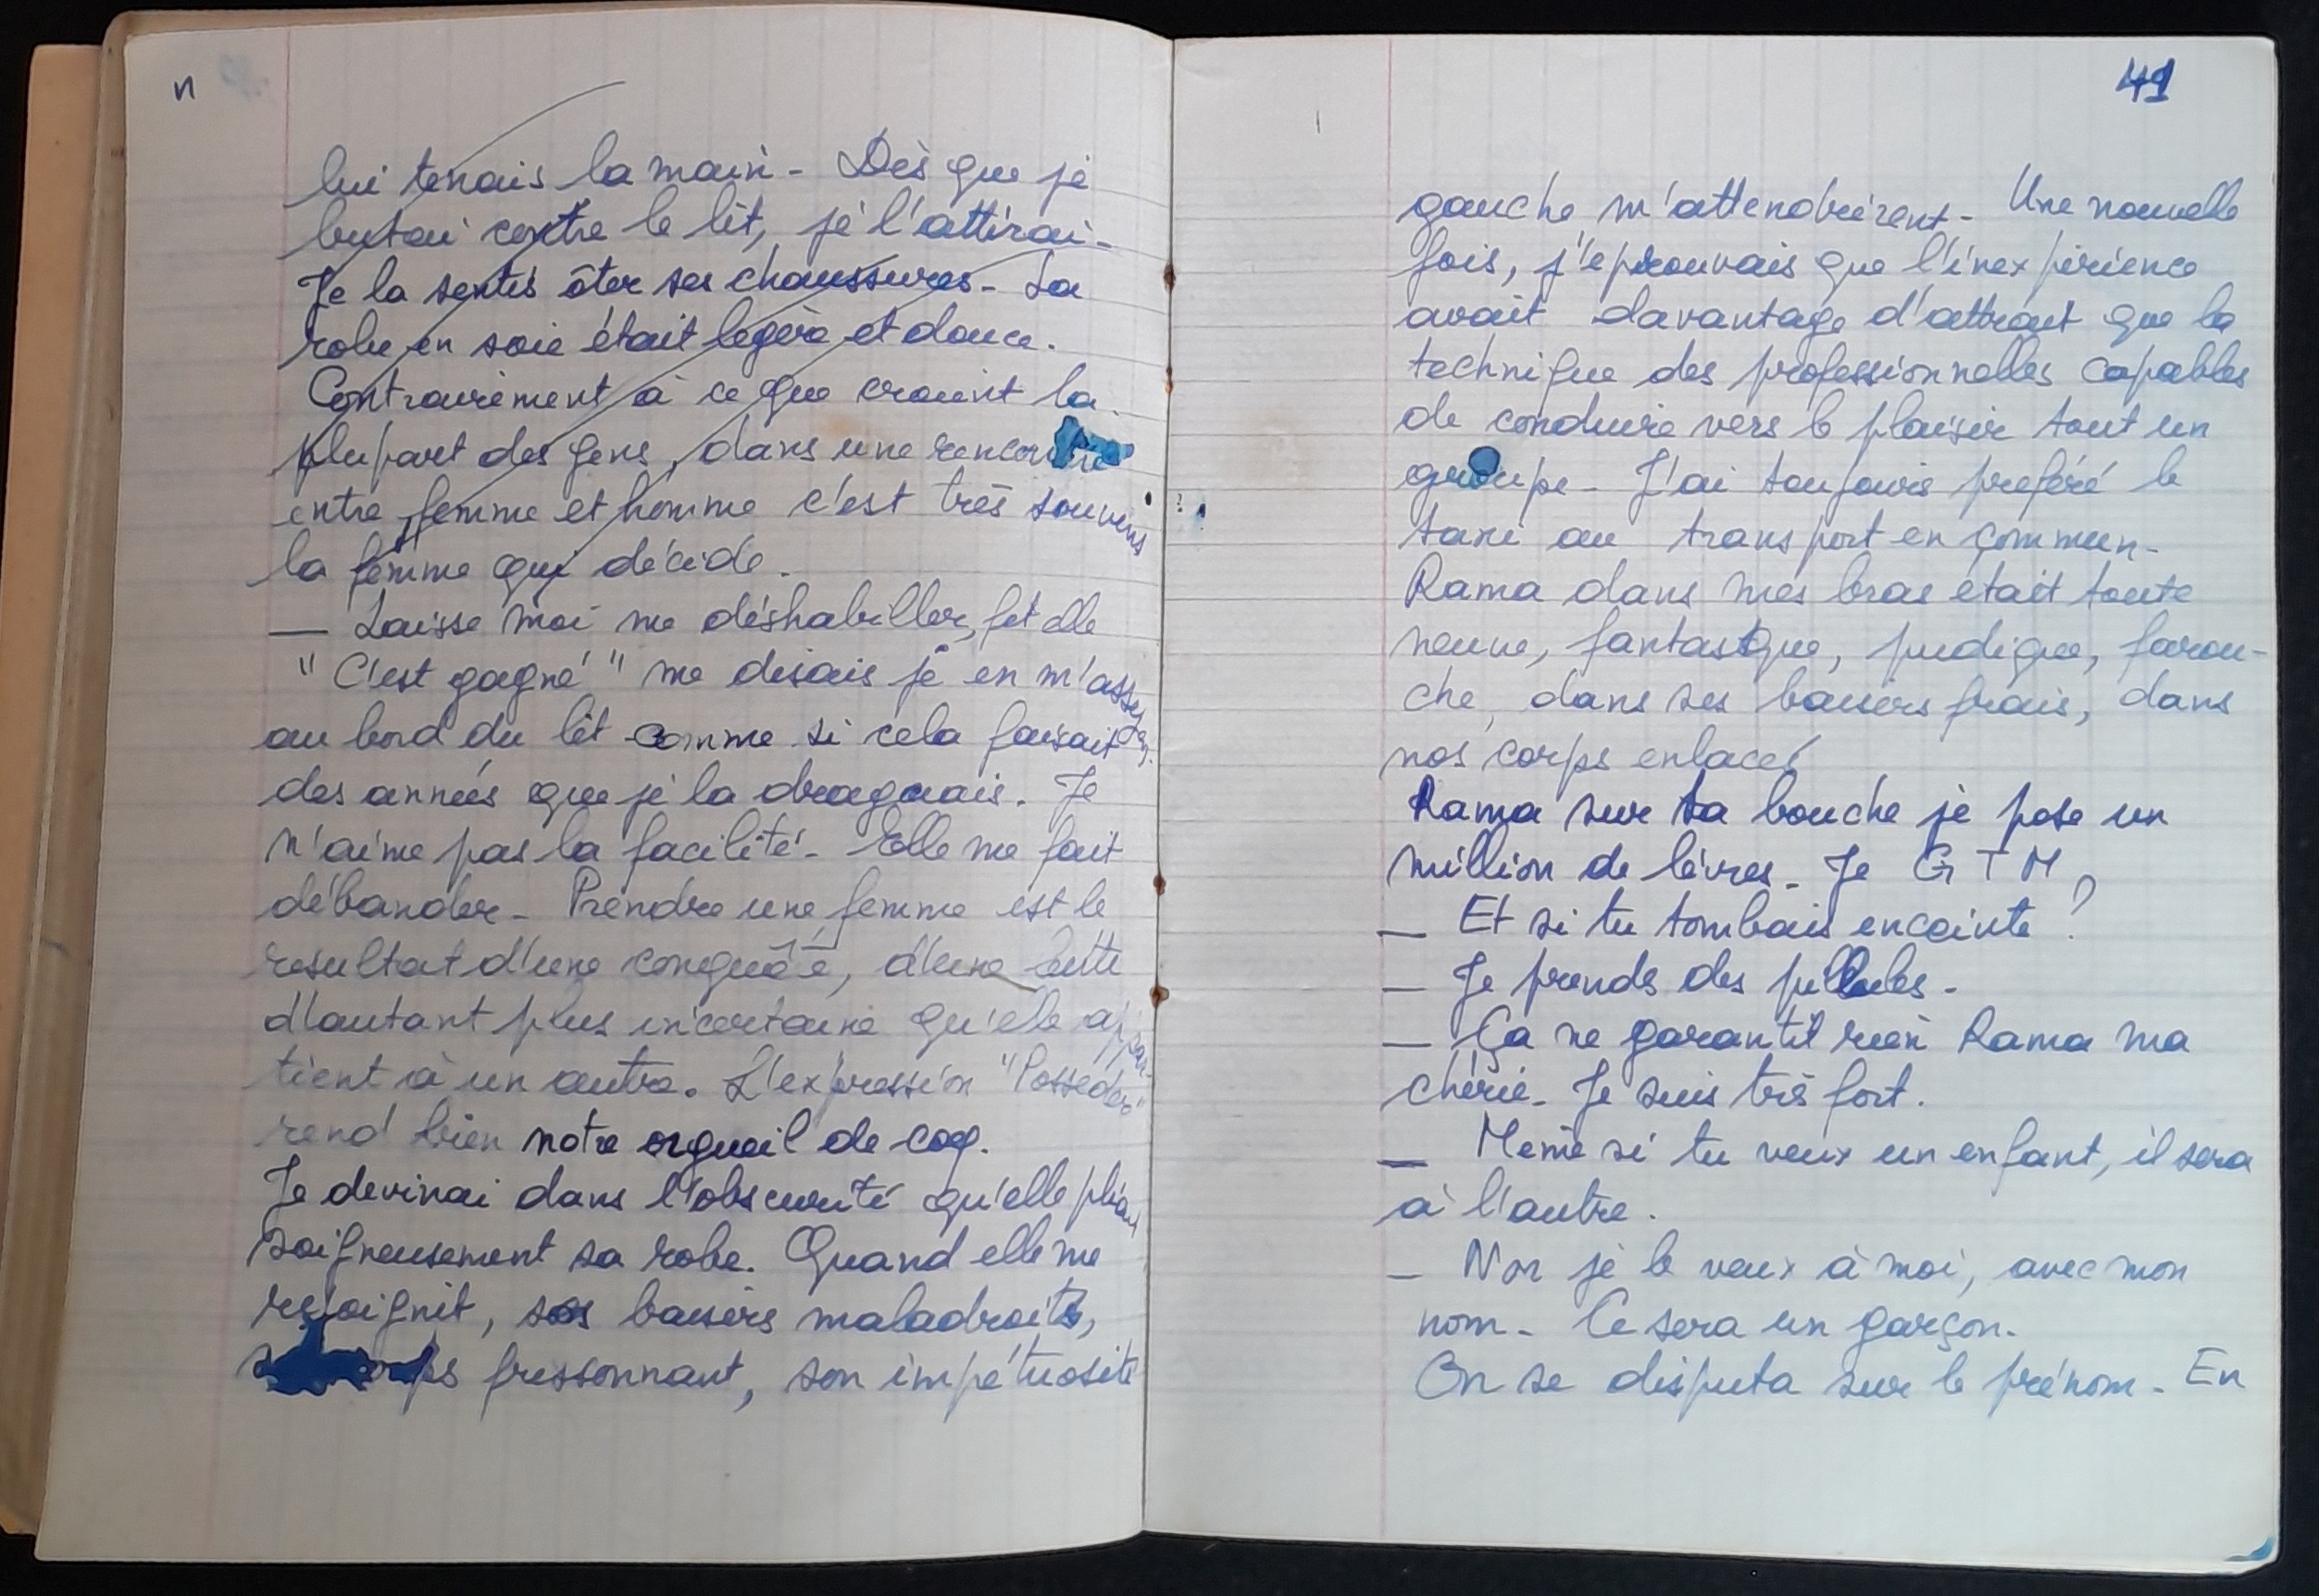 n
lui tenais la main - Dès que je
butai contre le lit, je l'attirai -
Je la sentis ôter ses chaussures - La
robe en soie était légère et douce.
Contrairement à ce que croient la
plupart des gens, dans une rencontre
entre femme et homme c'est très souvent
la femme qui décide.
— Laisse moi me déshabiller, fit elle
"C'est gagné" me disais je en m'asseyant
au bord du lit comme si cela faisait
des années que je la draguais. Je
n'aime pas la facilité - Elle me fait
débander - Prendre une femme est le
resultat d'une conquête, d'une lutte
d'autant plus incertaine qu'elle appar-
tient à un autre. L'expression "Posseder"
rend bien notre orgueil de coq.
Je devinai dans l'obscurité qu'elle pliait
soigneusement sa robe. Quand elle me
rejoignit, ses baisers maladroits,
frissonnant, son impétuosité
41
gauche m'attendrirent - Une nouvelle
fois, j'eprouvais que l'inexpérience
avait davantage d'attrait que la
technique des professionnelles capables
de conduire vers le plaisir tout un
groupe - J'ai toujours preféré le
taxi au transport en commun -
Rama dans mes bras était toute
neuve, fantastque, pudique, farou-
che, dans ses baisers frais, dans
nos corps enlacés
Rama sur ta bouche je pose un
million de lèvres - Je G T M
— Et si tu tombais enceinte ?
— Je prends des pillules -
— Ça ne garantit rien Rama ma
chérie - Je suis très fort.
— Meme si tu veux un enfant, il sera
à l'autre.
— Non je le veux à moi, avec mon
nom - Ce sera un garçon.
On se disputa sur le prénom - En